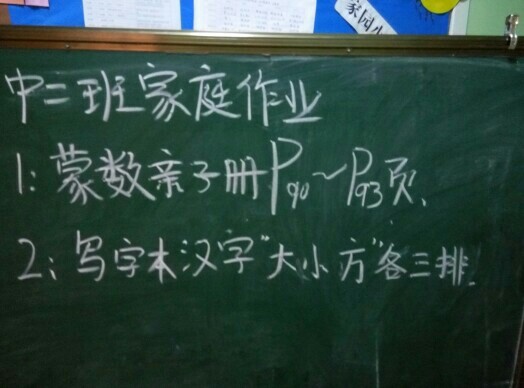 家园
中二班家庭作业
1:蒙数亲子册P90~P93页.
2:写字本汉字"大小方"各三排.